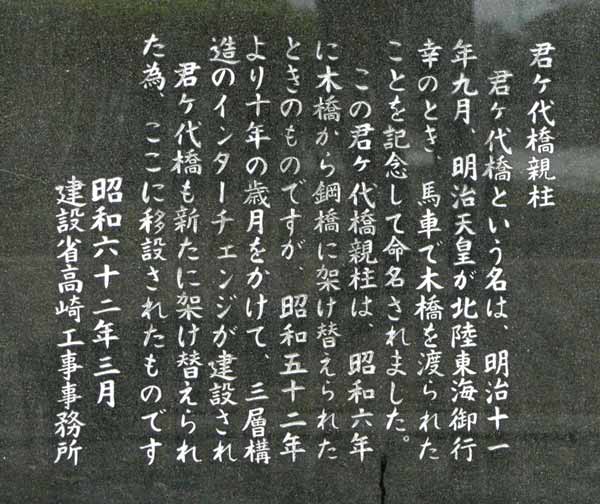 君ケ代橋親柱
君ケ代橋という名は、明治十一
年九月、明治天皇が北陸東海御行
幸のとき、馬車で木橋を渡られた
ことを記念して命名されました。
この君ケ代橋親柱は、昭和六年
に木橋から鋼橋に架け替えられた
ときのものですが、昭和五十二年
より十年の歳月をかけて、三層構
造のインターチェンジが建設され
君ケ代橋も新たに架け替えられ
た為、ここに移設されたものです
昭和六十二年三月
建設省高崎工事事務所